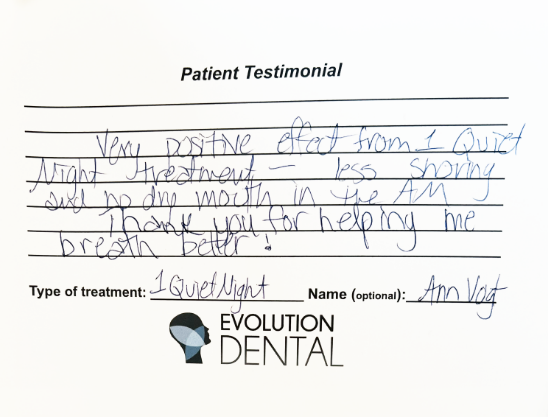 Patient Testimonial
Very positive effect from 1 Quiet
Night treatment — less snoring
and no dry mouth in the AM
Thank you for helping me
breath better!
Type of treatment: 1 Quiet Night Name (optional): Ann Vogt
EVOLUTION
DENTAL